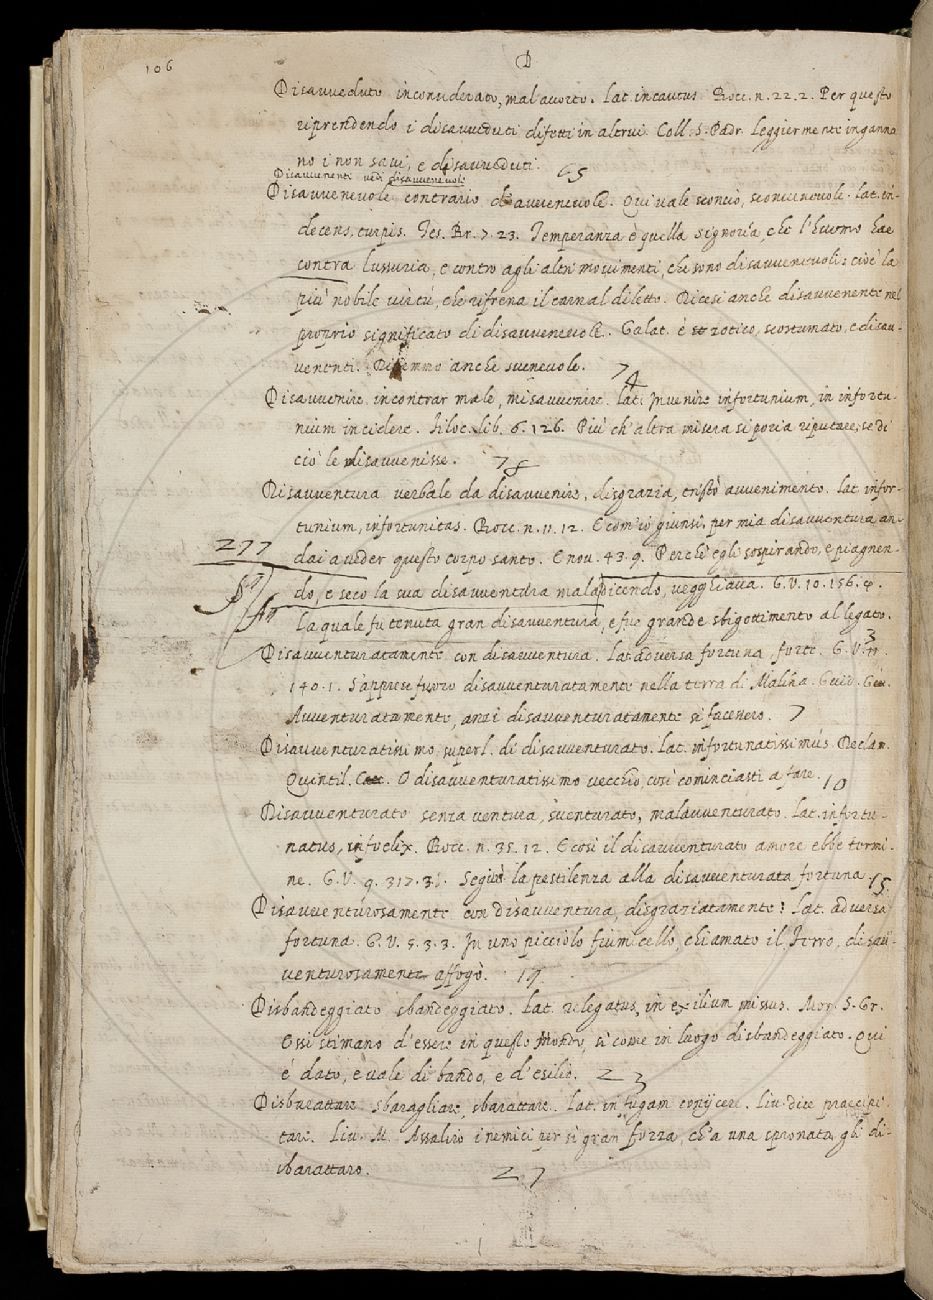 106
D
Disavveduto inconsiderato, mal'accorto. Lat. incautus. Bocc. n. 22. 2. Per questo
riprendendo i disavveduti difetti in altrui. Coll. S. Padr. Leggiermente inganna
no i non savi, e disavveduti. 65
Disavvenenti vedi disavvenevoli
Disavvenevole contrario di avvenevole. Qui vale sconcio, sconvenevole. Lat. in-
decens, turpis. Tes. Br. 7. 23. Temperanza è quella signoria, che l'huomo hae
contra lussuria, e contro agli altri movimenti, che sono disavvenevoli: cioè la
più nobile virtù, che rifrena il carnal diletto. Dicesi anche disavvenente nel
proprio significato di disavvenevole. Galat. è zotico, scostumato, e disav-
venenti. Dicemmo anche svenevole. 74
Disavvenire incontrar male, misavvenire. Lat. Invenire infortunium, in infortu-
nium incidere. Filoc. lib. 6. 126. Più ch'altra misera si poria riputare, se di
ciò le disavvenisse. 78
Disavventura verbale da disavvenire, disgrazia, tristo avvenimento. Lat. infor-
tunium, infortunitas. Bocc. n. 11. 12. E com'io giunsi, per mia disavventura an-
277 dai a veder questo corpo santo. E nov. 43. 9. Perchè egli sospirando, e piagnen-
do, e seco la sua disavventura maladicendo, vegghiava. G. V. 10. 156. 4.
La quale fu tenuta gran disavventura, e fue grande sbigottimento al legato.
Disavventuratamente con disavventura. Lat. adversa fortuna, forte. G. V. 3
140. 1. S'apprese fuoco disavventuratamente nella terra di Malina. Guid. G.
Avventuratamente, anzi disavventuratamente si facevero. 7
Disavventuratissimo superl. di disavventurato. Lat. infortunatissimus. Declam.
Quintil. C. O disavventuratissimo vecchio, così cominciasti a fare. 10
Disavventurato senza ventura, sventurato, malavventurato. Lat. infortu-
natus, infoelix. Bocc. n. 35. 12. E così il disavventurato amore ebbe termi-
ne. G. V. 9. 317. 31. Seguio la pestilenza alla disavventurata fortuna. 15
Disavventurosamente con disavventura, disgraziatamente: Lat. adversa
fortuna. G. V. 5. 3. 3. In uno picciolo fiumicello, chiamato il Ferro, disav-
venturosamente affogò. 19
Disbandeggiato sbandeggiato. Lat. relegatus, in exilium missus. Mor. S. Gr.
Essi stimano d'essere in questo Mondo, sì come in luogo disbandeggiato. Qui
è dato, e vale di bando, e d'esilio. 23
Disbarattare sbaragliare, sbarattare. Lat. in fugam conijcere. Liv. dice praecipi-
tare. Liv. M. Assaliro i nemici per sì gran forza, ch'a una spronata gli di-
sbarattaro. 27